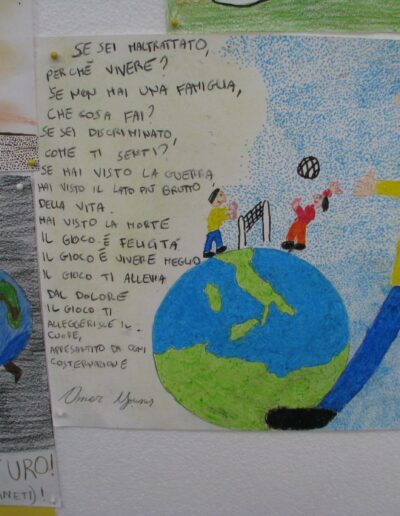 SE SEI MALTRATTATO,
PERCHÉ VIVERE?
SE NON HAI UNA FAMIGLIA,
CHE COSA FAI?
SE SEI DISCRIMINATO,
COME TI SENTI?
SE HAI VISTO LA GUERRA
HAI VISTO IL LATO PIÙ BRUTTO
DELLA VITA.
HAI VISTO LA MORTE
IL GIOCO È FELICITÀ
IL GIOCO È VIVERE MEGLIO
IL GIOCO TI ALLEVIA
DAL DOLORE
IL GIOCO TI
ALLEGGERISCE IL
CUORE,
APPESANTITO DA OGNI
COSTERNAZIONE
Omar
URO!
ANETI)!